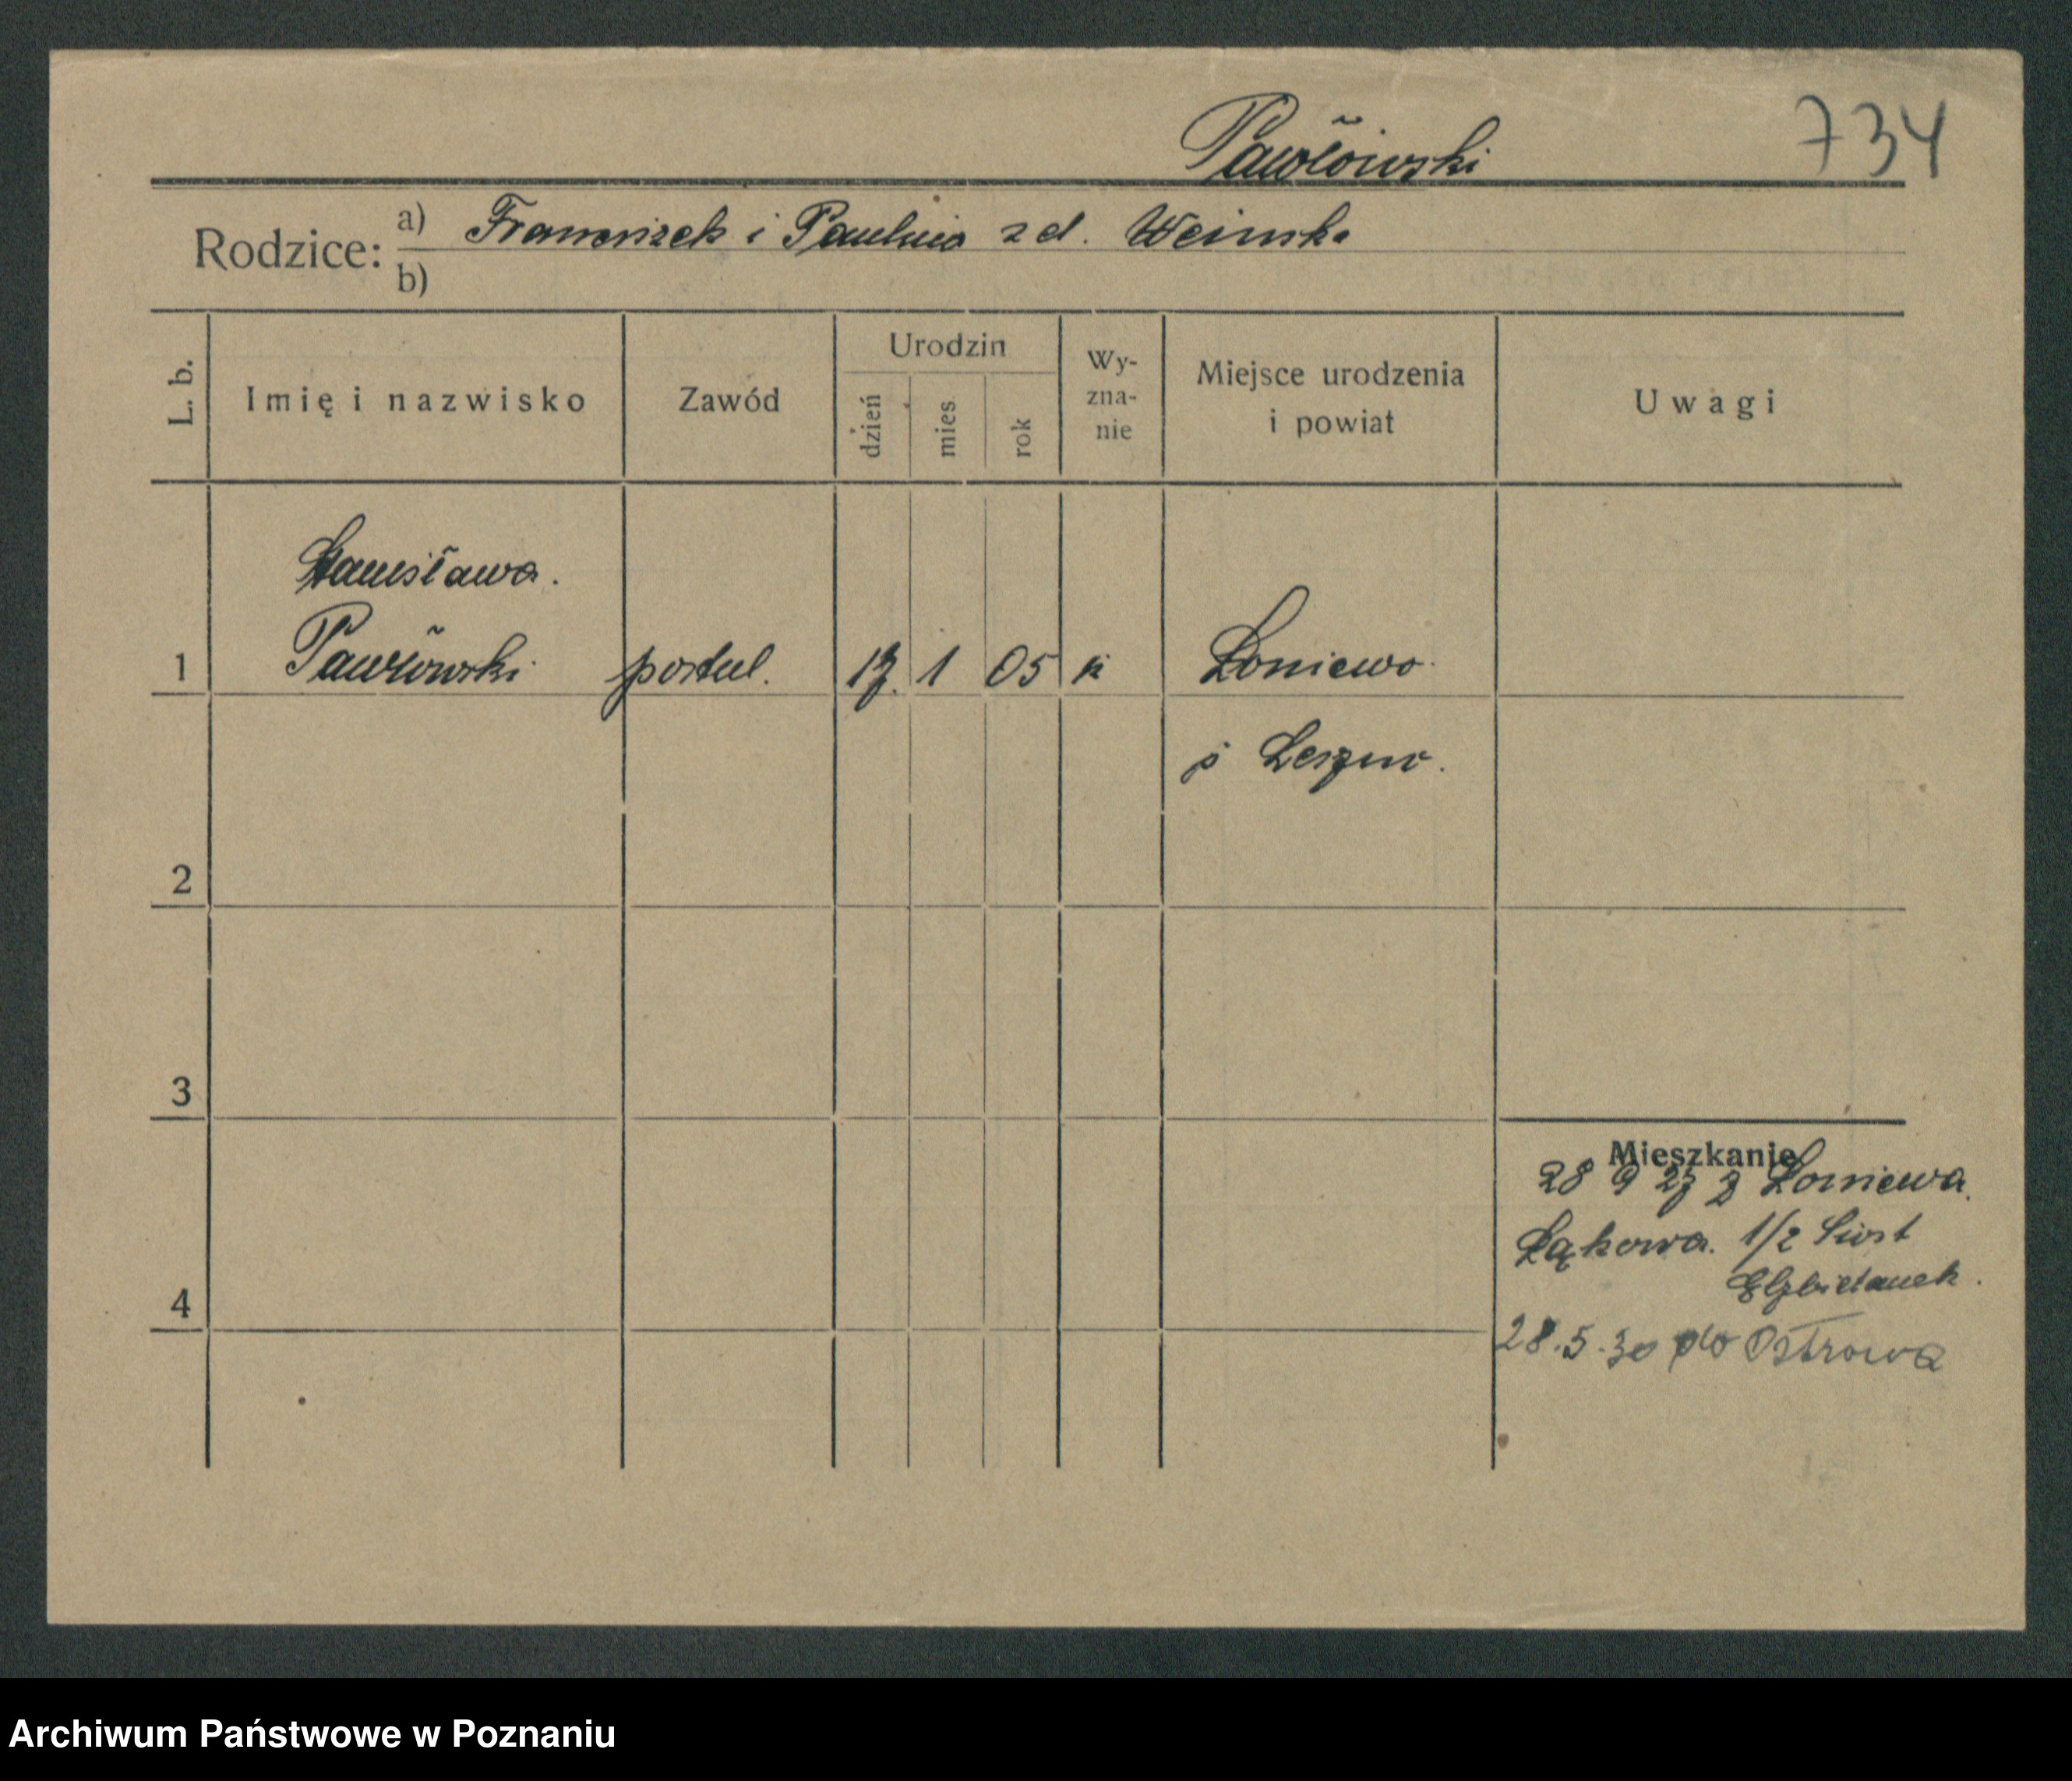 Pawłowski 734
Rodzice: a) Franciszek i Paulina z d. Weinska
b)
L. b. Imię i nazwisko Zawód Urodzin dzień mies. rok Wyznanie Miejsce urodzenia i powiat Uwagi
Stanisława.
1 Pawłowski postul. 17. 1 05 k Łoniewo
p Leszno.
2
3
Mieszkanie
28 9 27 z Łoniewa.
Łąkowa. 1/2 Siost
4 Elżbietanek.
28.5.30 do Ostrowa
Archiwum Państwowe w Poznaniu